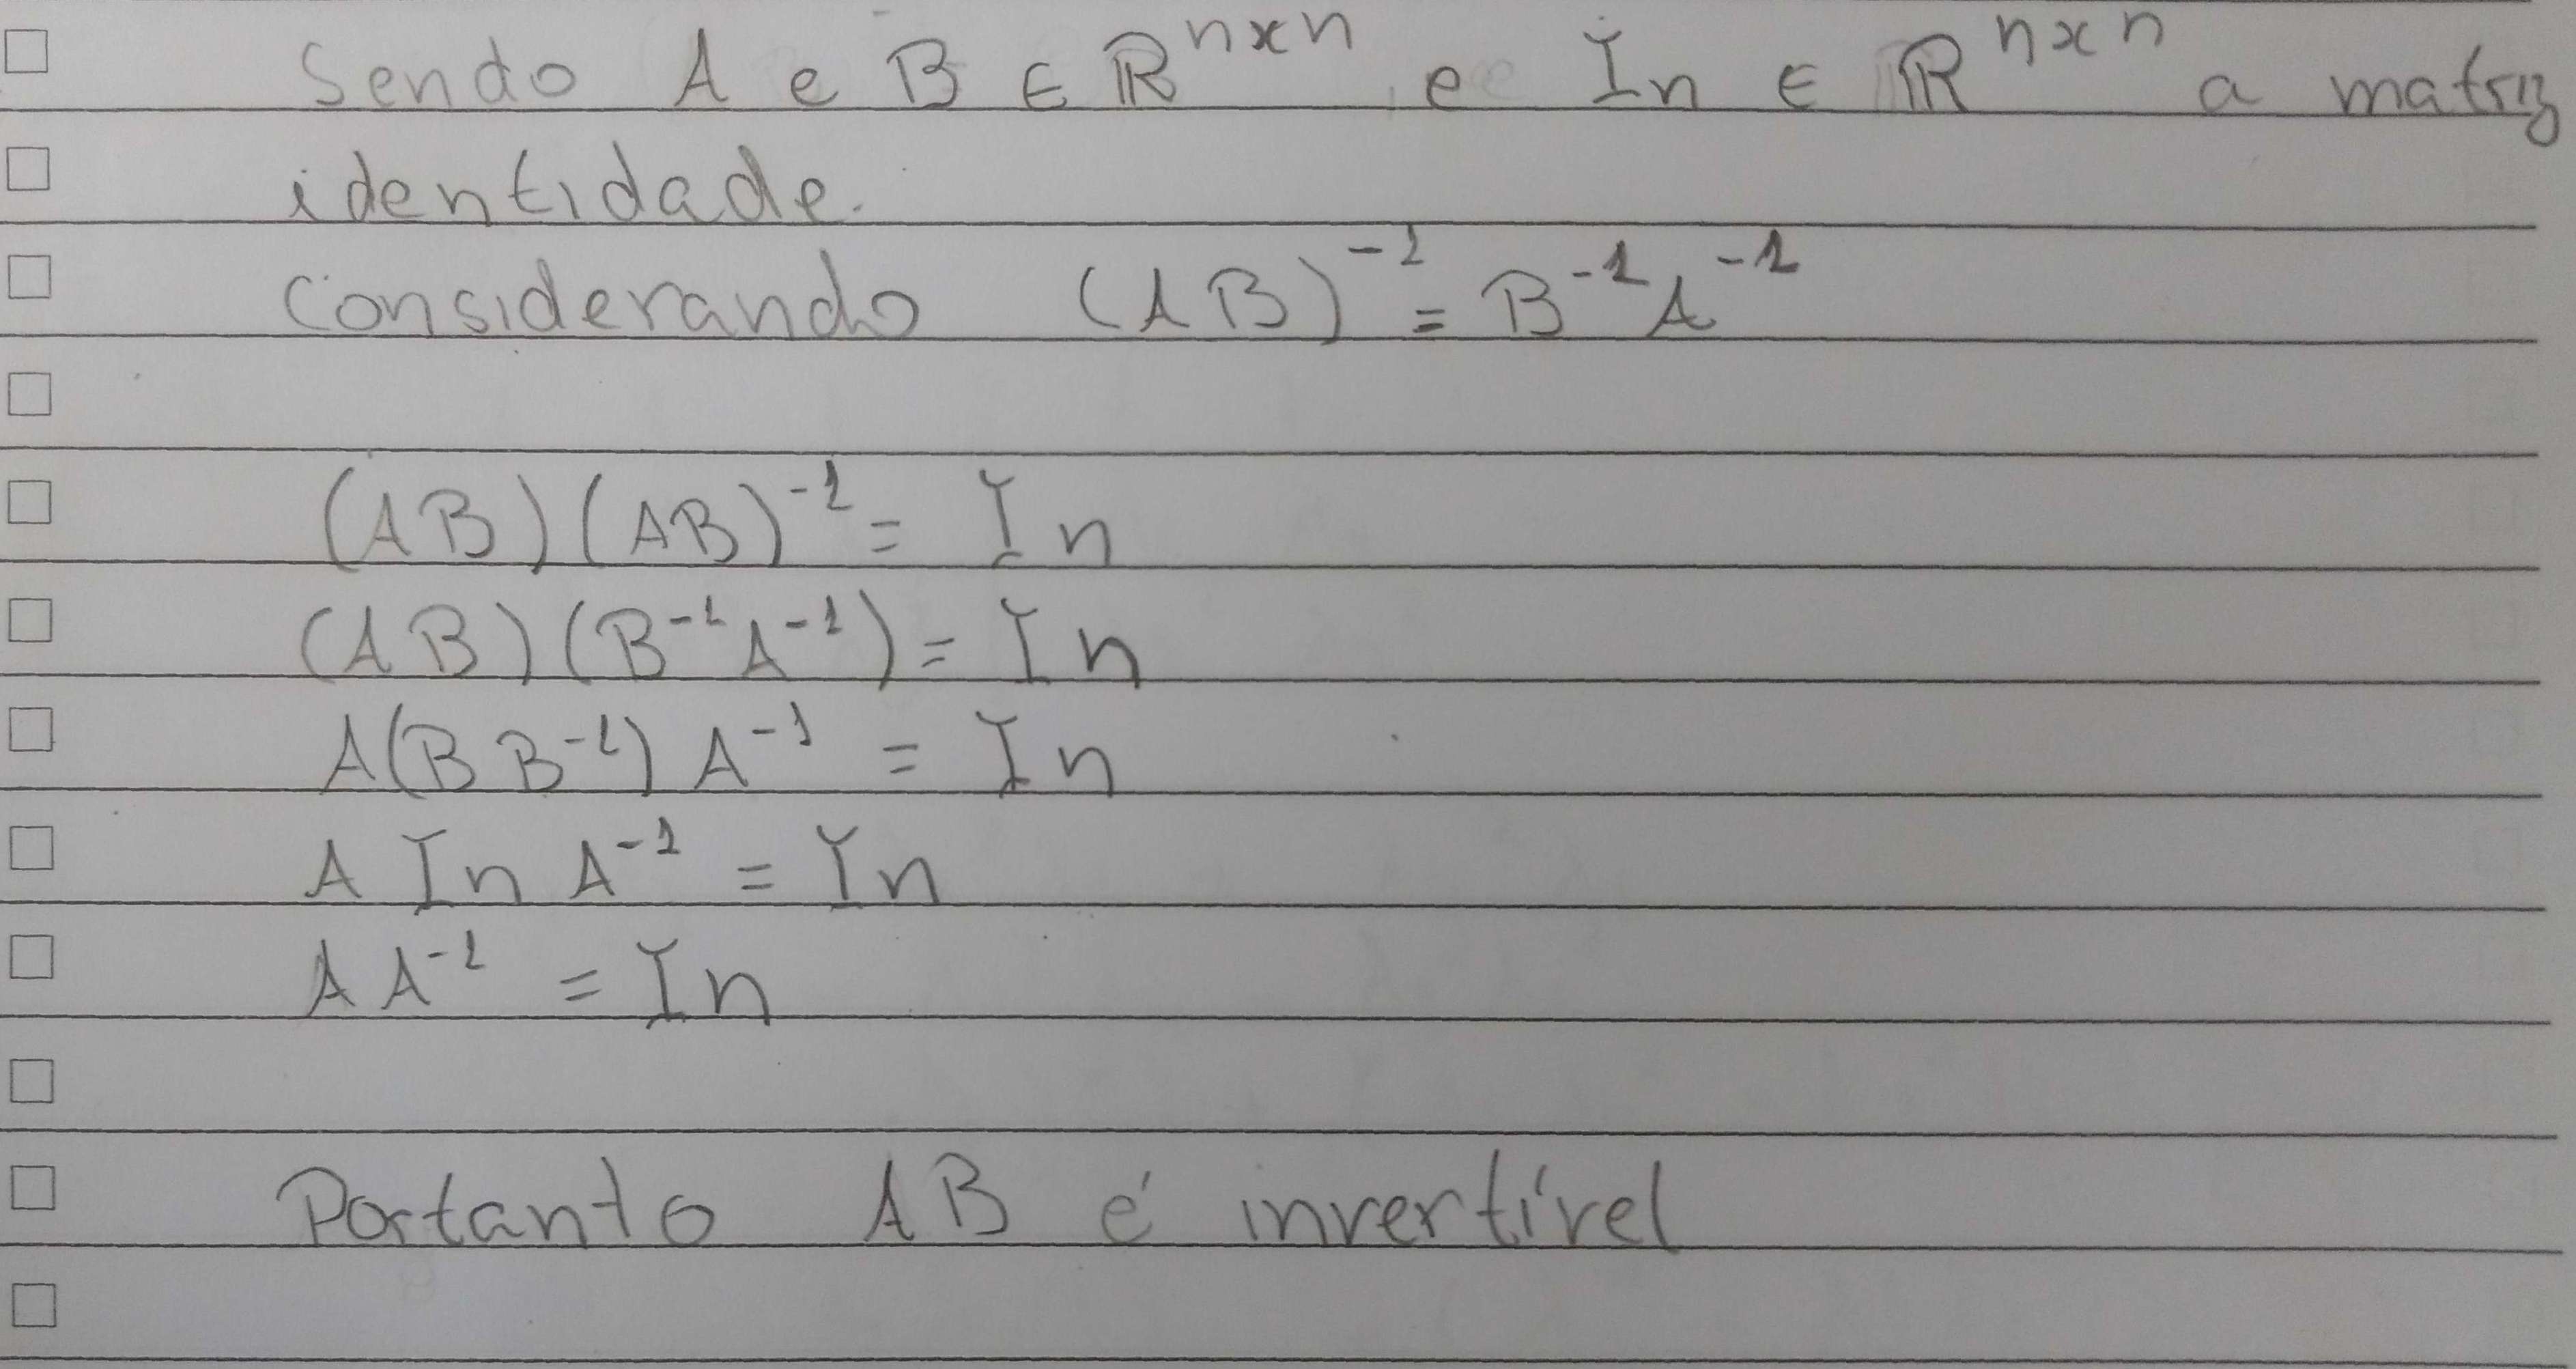 Sendo A e B ∈ ℝ^{n×n} e In ∈ ℝ^{n×n} a matriz
identidade.
Considerando (AB)^{-1} = B^{-1}A^{-1}
(AB)(AB)^{-1} = In
(AB)(B^{-1}A^{-1}) = In
A(BB^{-1})A^{-1} = In
A In A^{-1} = In
AA^{-1} = In
Portanto AB é invertível